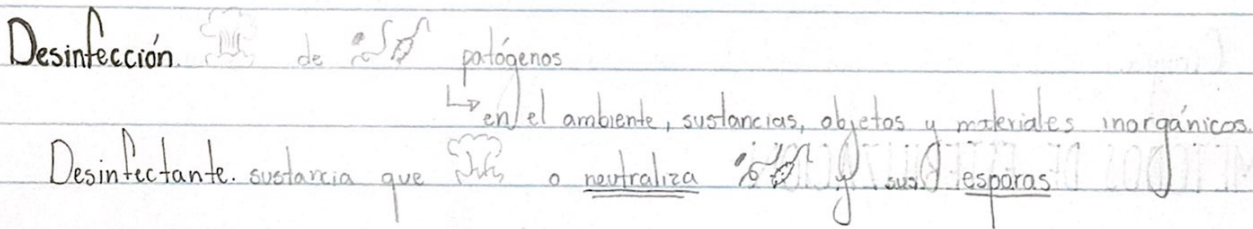 Desinfección. de patógenos
↳ en el ambiente, sustancias, objetos y materiales inorgánicos.
Desinfectante. sustancia que o neutraliza y sus esporas